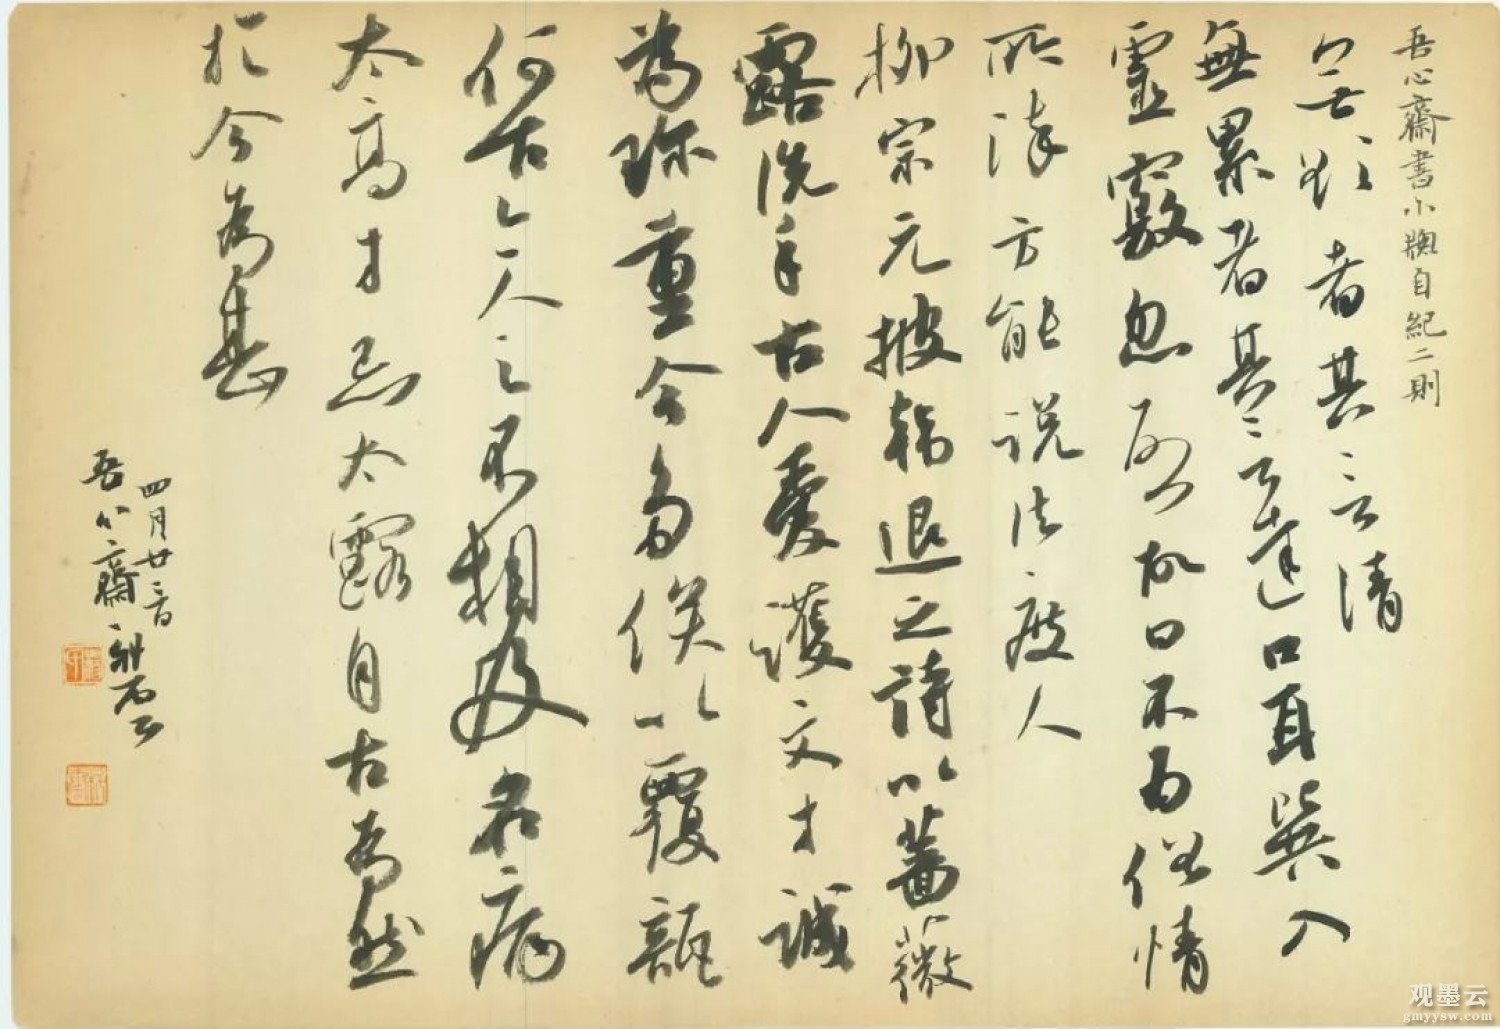 吾心齋書小牕自紀二則
欲者其言清
無累者其言達口耳巽入
靈竅忽啟故曰不為俗情
所染方能說法度人
柳宗元披韓退之詩以薔薇
露洗手古人愛護文才誠
為珍重今多俟以覆瓿
何古今人之不相及名病
太高才忌太露自古為然
於今為甚
四月廿三日
吾心齋
观墨云
gmyysw.com